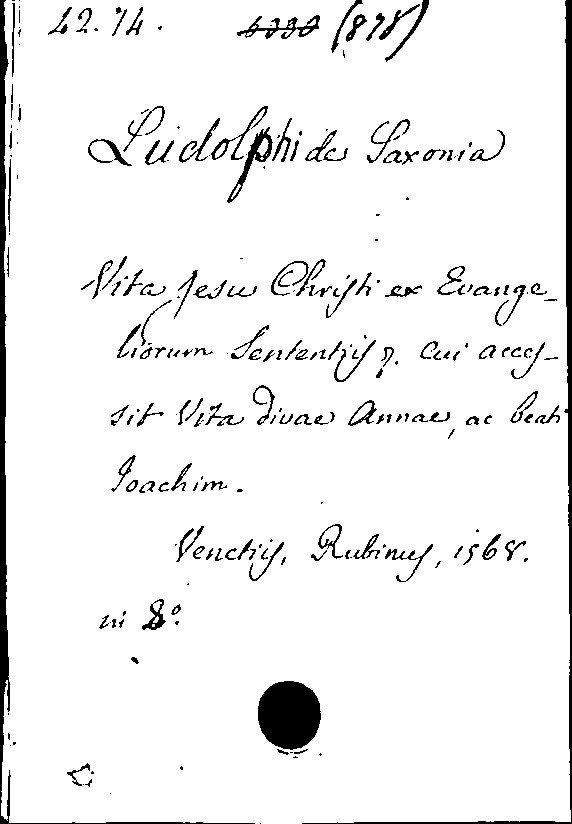 42.74. (878)
Ludolphi de Saxonia
Vita Jesu Christi ex Evange-
liorum Sententijs cui acces-
sit Vita divae Annae, ac beati
Joachim.
Venetijs, Rubinus, 1568.
in 8°.